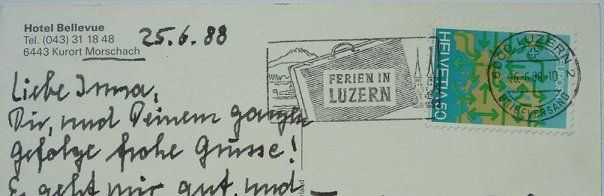 Hotel Bellevue
Tel. (043) 31 18 48
6443 Kurort Morschach
25.6.88
Liebe Irma,
Dir, und Deinem ganzen
Gefolge frohe Grüsse!
Es geht mir gut, und
FERIEN IN
LUZERN
HELVETIA 50
6000 LUZERN 2